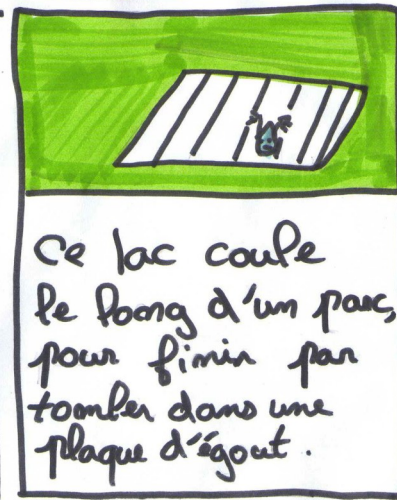 Ce lac coule
le long d'un parc,
pour finir par
tomber dans une
plaque d'égout.